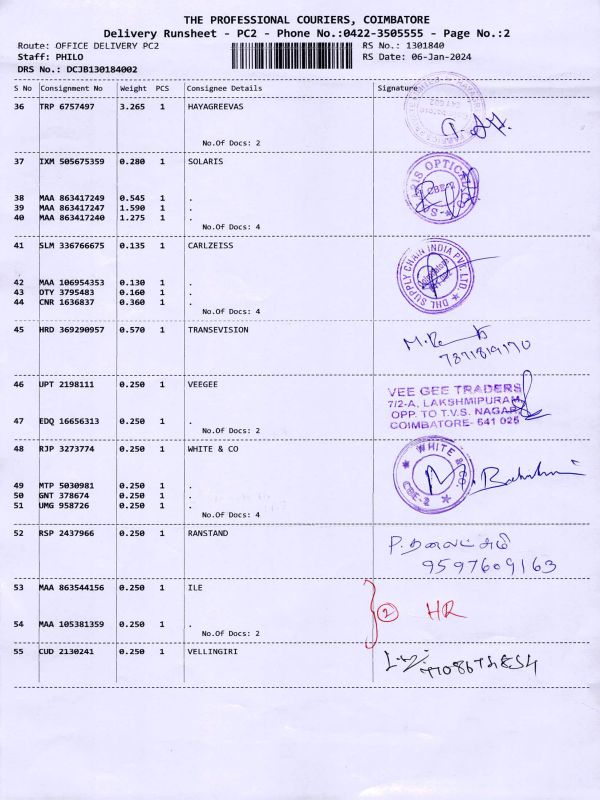 THE PROFESSIONAL COURIERS, COIMBATORE
Delivery Runsheet - PC2 - Phone No.:0422-3505555 - Page No.:2
Route: OFFICE DELIVERY PC2 RS No.: 1301840
Staff: PHILO RS Date: 06-Jan-2024
DRS No.: DCJB130184002
S No Consignment No Weight PCS Consignee Details Signature
36 TRP 6757497 3.265 1 HAYAGREEVAS
No.Of Docs: 2
37 IXM 505675359 0.280 1 SOLARIS
38 MAA 863417249 0.545 1 .
39 MAA 863417247 1.590 1 .
40 MAA 863417240 1.275 1 .
No.Of Docs: 4
41 SLM 336766675 0.135 1 CARLZEISS
DHL SUPPLY CHAIN INDIA PVT. LTD.
42 MAA 106954353 0.130 1 .
43 DTY 3795483 0.160 1 .
44 CNR 1636837 0.360 1 .
No.Of Docs: 4
45 HRD 369290957 0.570 1 TRANSEVISION
7871819170
46 UPT 2198111 0.250 1 VEEGEE
VEE GEE TRADERS
7/2-A, LAKSHMIPURAM
OPP. TO T.V.S. NAGAR
COIMBATORE- 641 025
47 EDQ 16656313 0.250 1 .
No.Of Docs: 2
48 RJP 3273774 0.250 1 WHITE & CO
WHITE & CO.
CBE-2
49 MTP 5030981 0.250 1 .
50 GNT 378674 0.250 1 .
51 UMG 958726 0.250 1 .
No.Of Docs: 4
52 RSP 2437966 0.250 1 RANSTAND
9597609163
53 MAA 863544156 0.250 1 ILE
2 HR
54 MAA 105381359 0.250 1 .
No.Of Docs: 2
55 CUD 2130241 0.250 1 VELLINGIRI